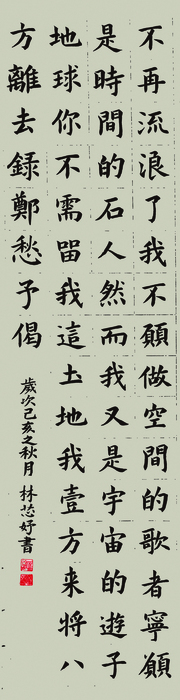 不再流浪了我不願做空間的歌者寧願
是時間的石人然而我又是宇宙的遊子
地球你不需留我這土地我壹方来將八
方離去録鄭愁予偈
歲次己亥之秋月 林芯好書